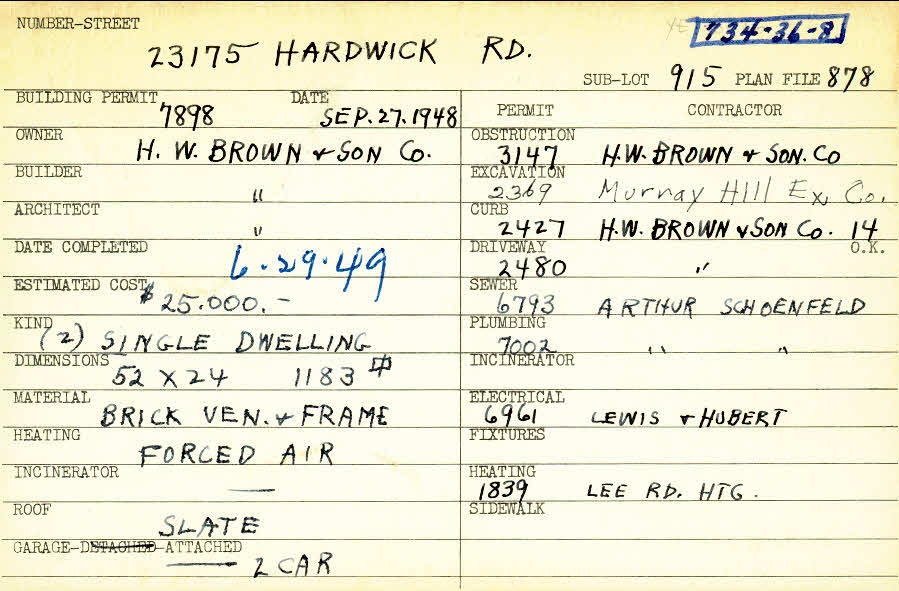 NUMBER-STREET
734-36-8
23175 HARDWICK RD.
SUB-LOT 915 PLAN FILE 878
BUILDING PERMIT 7898 DATE SEP. 27. 1948
OWNER H. W. BROWN & SON CO.
BUILDER "
ARCHITECT "
DATE COMPLETED 6.29.49
ESTIMATED COST $25.000.-
KIND (2) SINGLE DWELLING
DIMENSIONS 52 X 24 1183
MATERIAL BRICK VEN. & FRAME
HEATING FORCED AIR
INCINERATOR —
ROOF SLATE
GARAGE-DETACHED-ATTACHED 2 CAR
PERMIT CONTRACTOR
OBSTRUCTION 3147 H.W. BROWN & SON. CO
EXCAVATION 2369 Murray Hill Ex, Co.
CURB 2427 H.W. BROWN & SON CO. 14
DRIVEWAY 2480 " O.K.
SEWER 6793 ARTHUR SCHOENFELD
PLUMBING 7002 " "
INCINERATOR
ELECTRICAL 6961 LEWIS & HUBERT
FIXTURES
HEATING 1839 LEE RD. HTG.
SIDEWALK